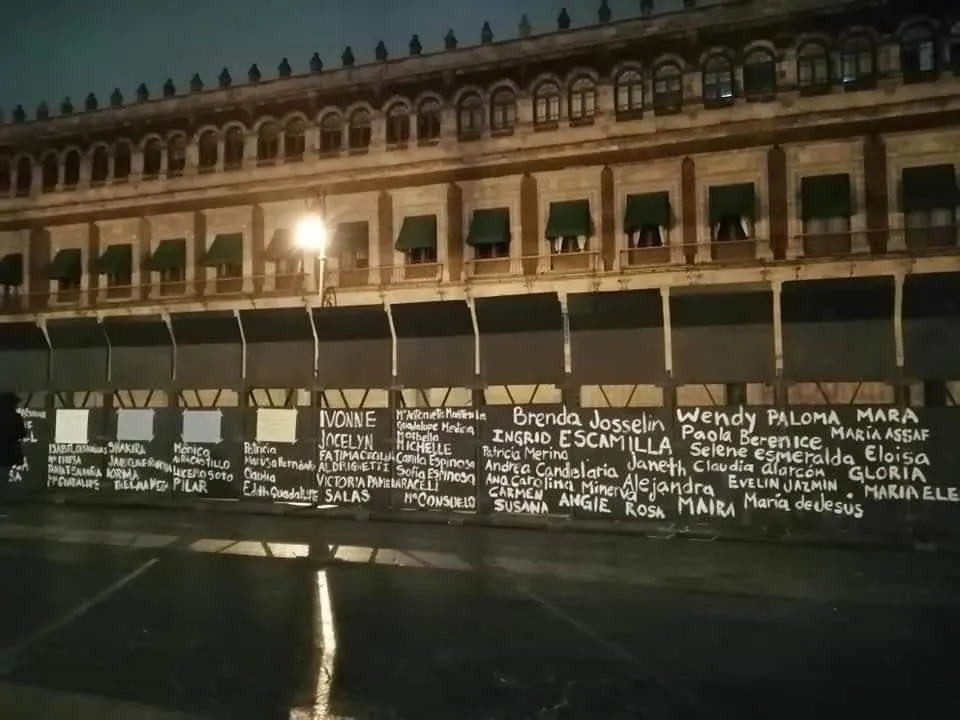 SHAKIRA
NORMA
Mónica
CASTILLO
LUCERO SOTO
PILAR
Patricia
Marisol Hernández
Claudia
Edith Guadalupe
IVONNE
JOCELYN
FATIMA CECILIA
ALDRIGHETTI
VICTORIA PAMELA
SALAS
Mª Antonieta
Guadalupe Medina
Mathelle
MICHELLE
Camila Espinosa
Sofia Espinosa
ARACELI
Mª CONSUELO
Brenda Josselin
INGRID ESCAMILLA
Patricia Merino
Andrea Candelaria Janeth
Ana Carolina Minerva Alejandra
CARMEN
SUSANA ANGIE ROSA MAIRA
Wendy PALOMA MARA
Paola Berenice MARÍA ASSAF
Selene esmeralda Eloisa
Claudia alarcón GLORIA
EVELIN JAZMIN MARIA ELE
María de Jesús